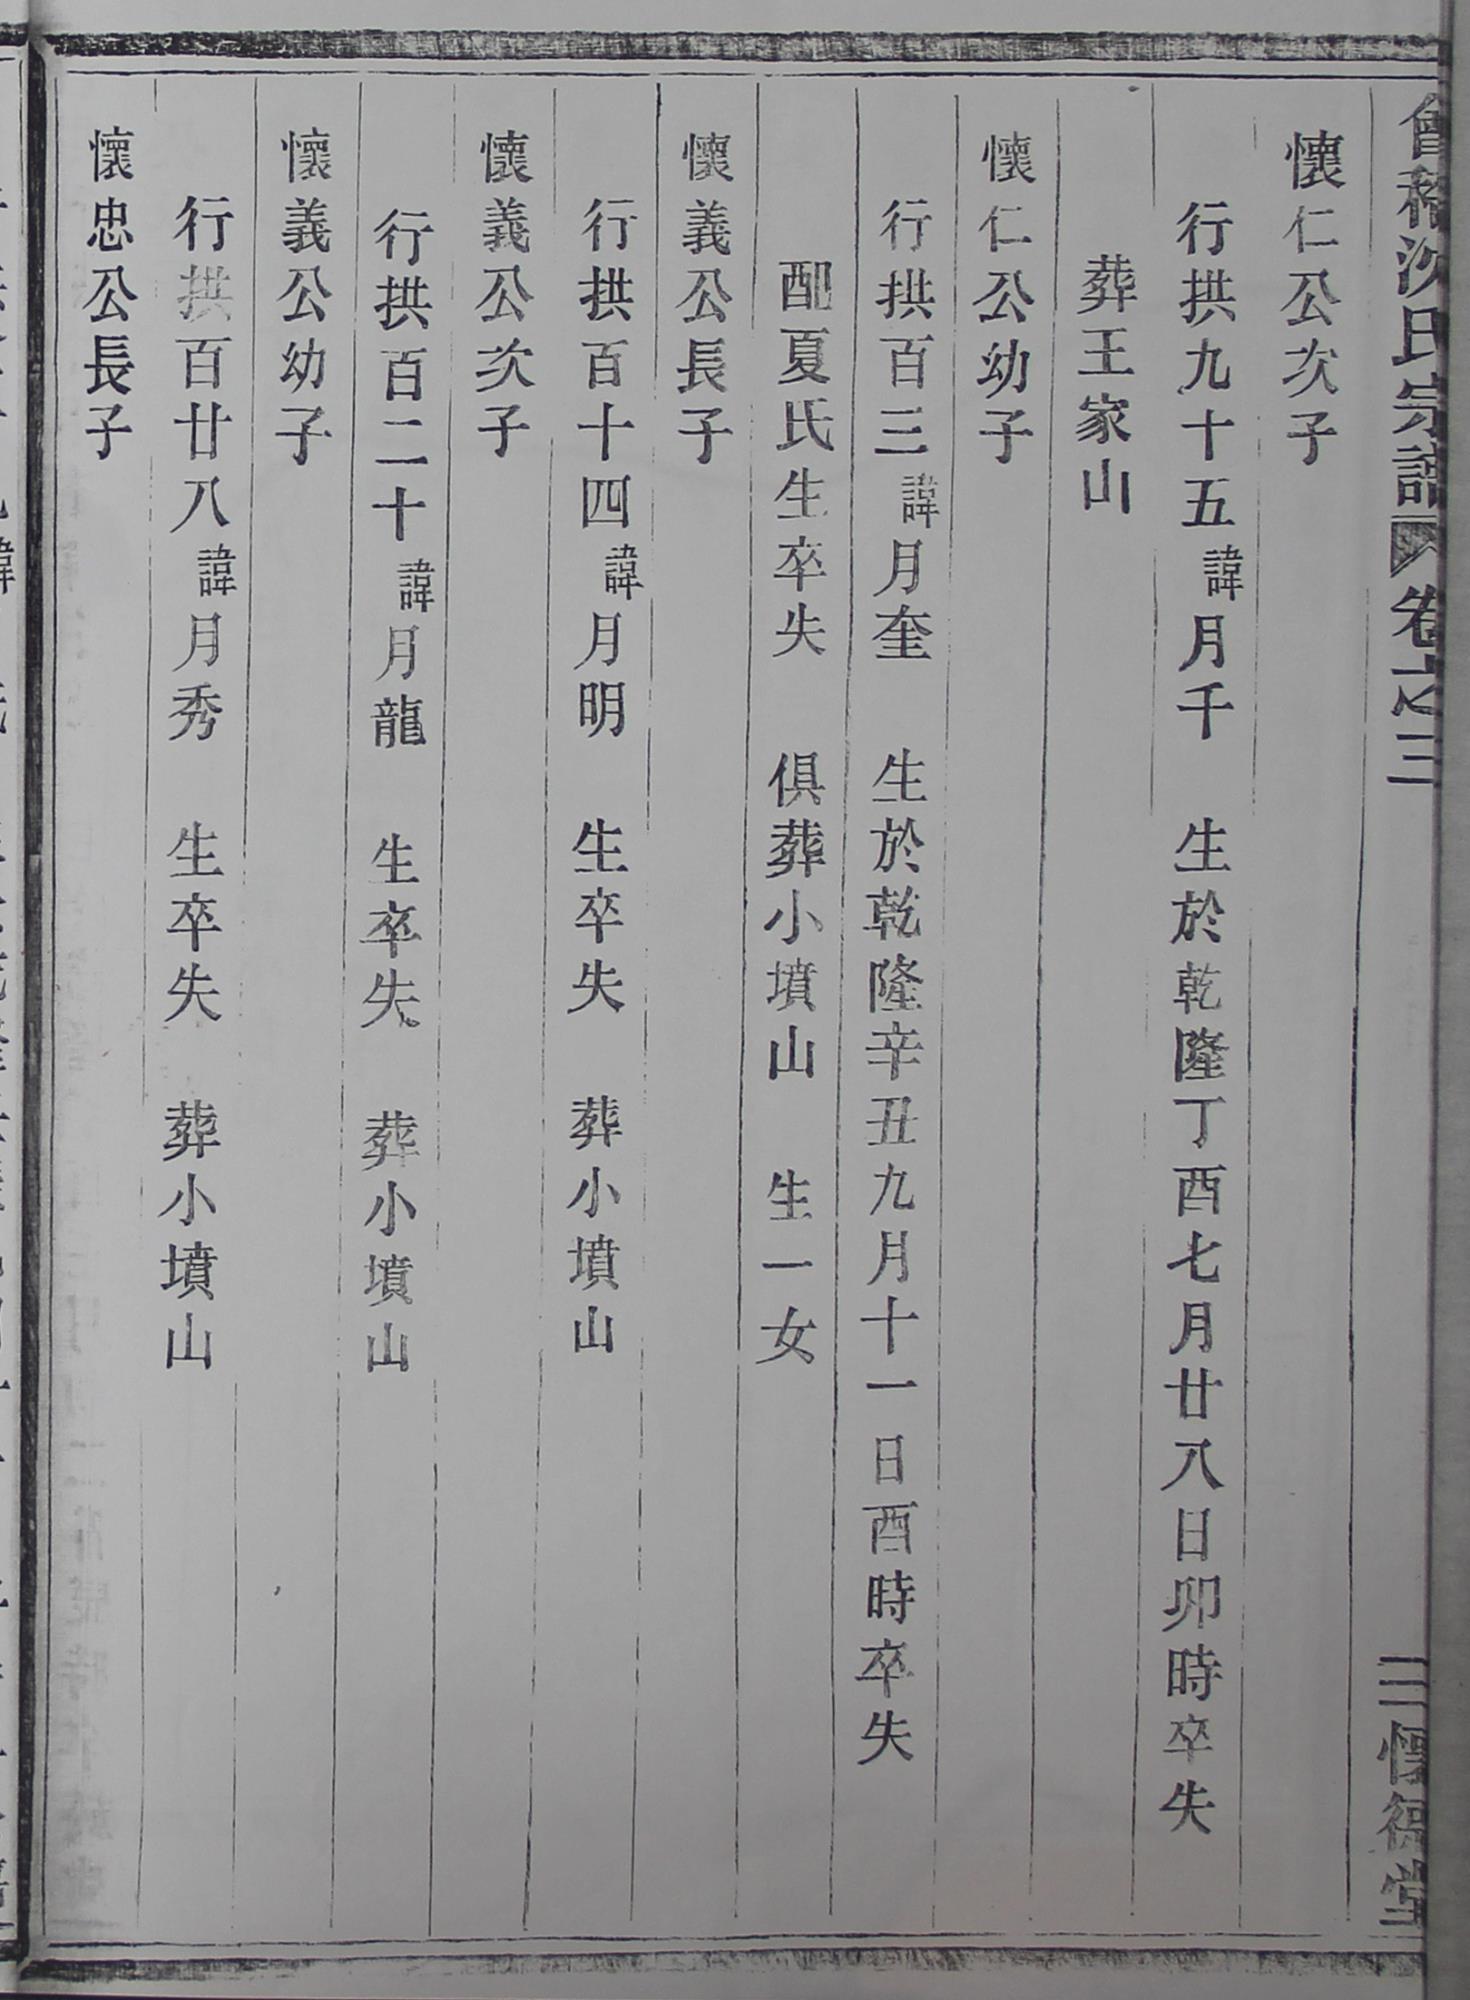 會稽沈氏宗譜 卷之三 三 懷德堂
懷仁公次子
行拱九十五諱月千 生於乾隆丁酉七月廿八日卯時卒失
葬王家山
懷仁公幼子
行拱百三諱月奎 生於乾隆辛丑九月十一日酉時卒失
配夏氏生卒失 俱葬小墳山 生一女
懷義公長子
行拱百十四諱月明 生卒失 葬小墳山
懷義公次子
行拱百二十諱月龍 生卒失 葬小墳山
懷義公幼子
行拱百廿八諱月秀 生卒失 葬小墳山
懷忠公長子